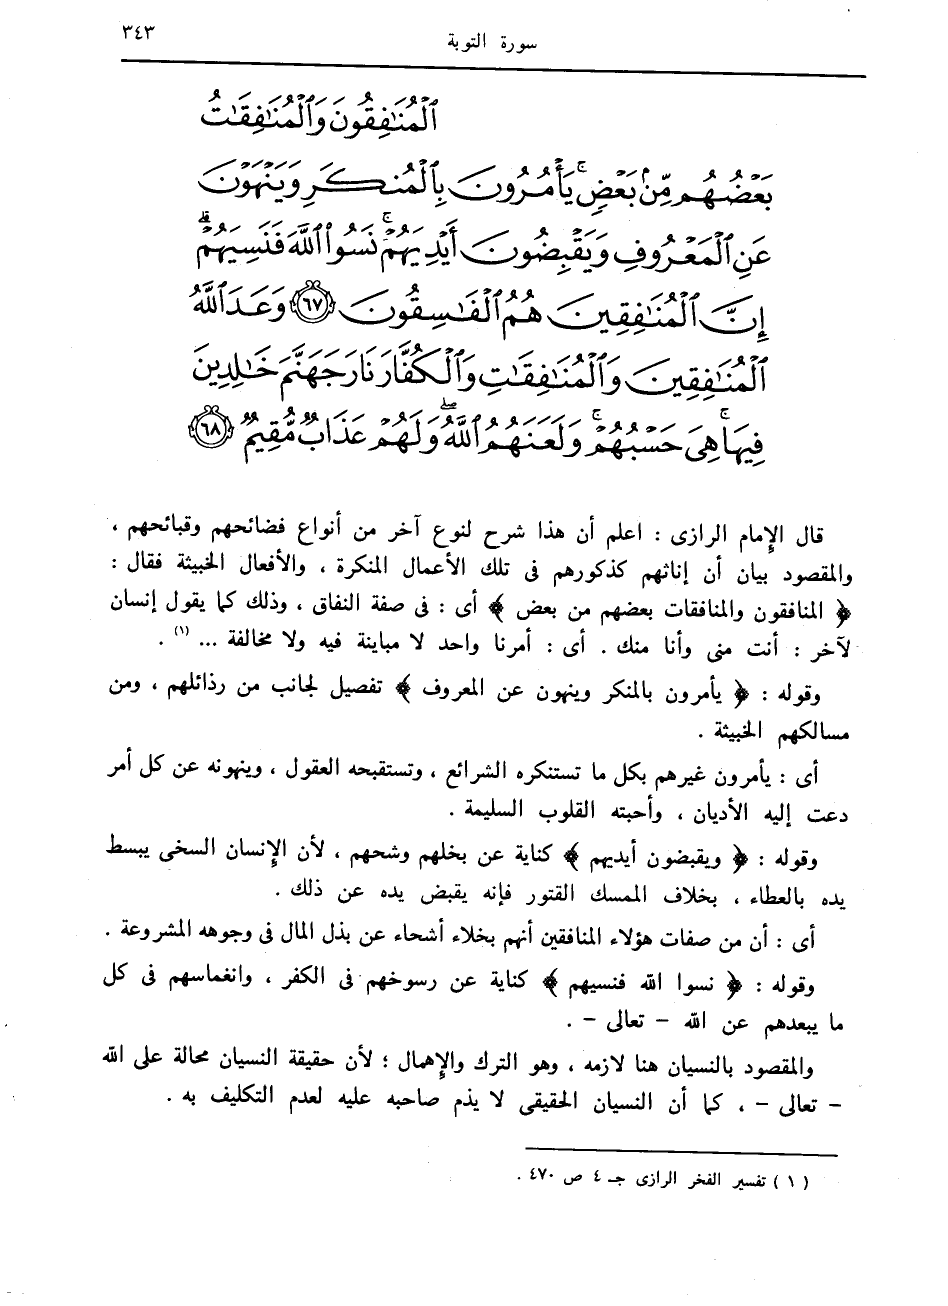 سورة التوبة ٣٤٣
ٱلْمُنَٰفِقُونَ وَٱلْمُنَٰفِقَٰتُ
بَعْضُهُم مِّنۢ بَعْضٍ ۚ يَأْمُرُونَ بِٱلْمُنكَرِ وَيَنْهَوْنَ
عَنِ ٱلْمَعْرُوفِ وَيَقْبِضُونَ أَيْدِيَهُمْ ۚ نَسُوا۟ ٱللَّهَ فَنَسِيَهُمْ ۗ
إِنَّ ٱلْمُنَٰفِقِينَ هُمُ ٱلْفَٰسِقُونَ ٦٧ وَعَدَ ٱللَّهُ
ٱلْمُنَٰفِقِينَ وَٱلْمُنَٰفِقَٰتِ وَٱلْكُفَّارَ نَارَ جَهَنَّمَ خَٰلِدِينَ
فِيهَا ۚ هِىَ حَسْبُهُمْ ۚ وَلَعَنَهُمُ ٱللَّهُ ۖ وَلَهُمْ عَذَابٌ مُّقِيمٌ ٦٨
قال الإمام الرازى : اعلم أن هذا شرح لنوع آخر من أنواع فضائحهم وقبائحهم ،
والمقصود بيان أن إناثهم كذكورهم فى تلك الأعمال المنكرة ، والأفعال الخبيثة فقال :
﴿ المنافقون والمنافقات بعضهم من بعض ﴾ أى : فى صفة النفاق ، وذلك كما يقول إنسان
لآخر : أنت منى وأنا منك . أى : أمرنا واحد لا مباينة فيه ولا مخالفة ... (١) .
وقوله : ﴿ يأمرون بالمنكر وينهون عن المعروف ﴾ تفصيل لجانب من رذائلهم ، ومن
مسالكهم الخبيثة .
أى : يأمرون غيرهم بكل ما تستنكره الشرائع ، وتستقبحه العقول ، وينهونه عن كل أمر
دعت إليه الأديان ، وأحبته القلوب السليمة .
وقوله : ﴿ ويقبضون أيديهم ﴾ كناية عن بخلهم وشحهم ، لأن الإنسان السخى يبسط
يده بالعطاء ، بخلاف الممسك القتور فإنه يقبض يده عن ذلك .
أى : أن من صفات هؤلاء المنافقين أنهم بخلاء أشحاء عن بذل المال فى وجوهه المشروعة .
وقوله : ﴿ نسوا الله فنسيهم ﴾ كناية عن رسوخهم فى الكفر ، وانغماسهم فى كل
ما يبعدهم عن الله - تعالى - .
والمقصود بالنسيان هنا لازمه ، وهو الترك والإهمال ؛ لأن حقيقة النسيان محالة على الله
- تعالى - ، كما أن النسيان الحقيقى لا يذم صاحبه عليه لعدم التكليف به .
( ١ ) تفسير الفخر الرازى جـ ٤ ص ٤٧٠ .